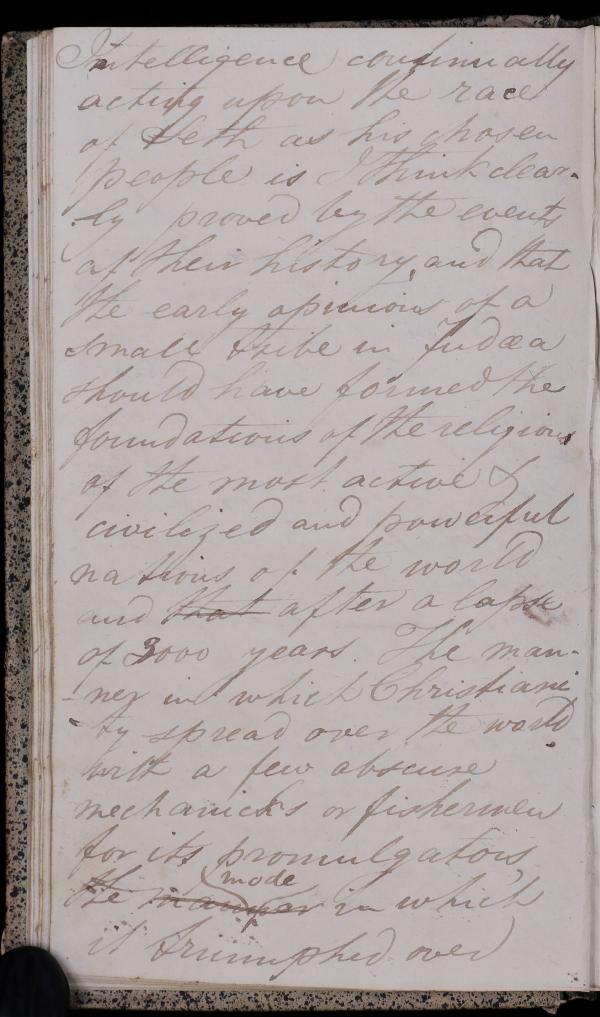 Intelligence continually
acting upon the race
of Seth as his chosen
people is I think clear-
-ly proved by the events
of their history, and that
the early opinions of a
small tribe in Judæa
should have formed the
foundations of the religions
of the most active &
civilized and powerful
nations of the world
and that after a lapse
of 3000 years. The man-
-ner in which Christiani
ty spread over the world
with a few obscure
mechanicks or fishermen
for its promulgators,
mode
the manner in which
it triumphed over